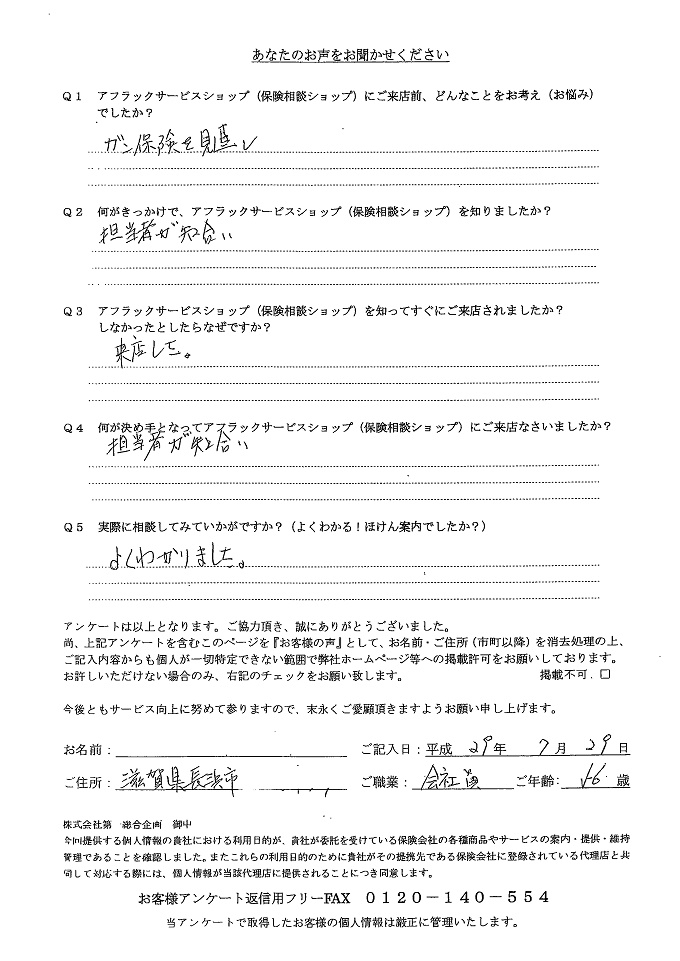 あなたのお声をお聞かせください
Q1 アフラックサービスショップ（保険相談ショップ）にご来店前、どんなことをお考え（お悩み）
でしたか？
ガン保険を見直し
Q2 何がきっかけで、アフラックサービスショップ（保険相談ショップ）を知りましたか？
担当者が知合い
Q3 アフラックサービスショップ（保険相談ショップ）を知ってすぐにご来店されましたか？
しなかったとしたらなぜですか？
来店した。
Q4 何が決め手となってアフラックサービスショップ（保険相談ショップ）にご来店なさいましたか？
担当者が知合い
Q5 実際に相談してみていかがですか？（よくわかる！ほけん案内でしたか？）
よくわかりました。
アンケートは以上となります。ご協力頂き、誠にありがとうございました。
尚、上記アンケートを含むこのページを『お客様の声』として、お名前・ご住所（市町以降）を消去処理の上、
ご記入内容からも個人が一切特定できない範囲で弊社ホームページ等への掲載許可をお願いしております。
お許しいただけない場合のみ、右記のチェックをお願い致します。 掲載不可．□
今後ともサービス向上に努めて参りますので、末永くご愛顧頂きますようお願い申し上げます。
お名前： ご記入日：平成 29年 7月 29日
ご住所：滋賀県長浜市 ご職業：会社員 ご年齢： 歳
株式会社第 総合企画 御中
今回提供する個人情報の貴社における利用目的が、貴社が委託を受けている保険会社の各種商品やサービスの案内・提供・維持
管理であることを確認しました。またこれらの利用目的のために貴社がその提携先である保険会社に登録されている代理店と共
同して対応する際には、個人情報が当該代理店に提供されることにつき同意します。
お客様アンケート返信用フリーFAX 0120－140－554
当アンケートで取得したお客様の個人情報は厳正に管理いたします。